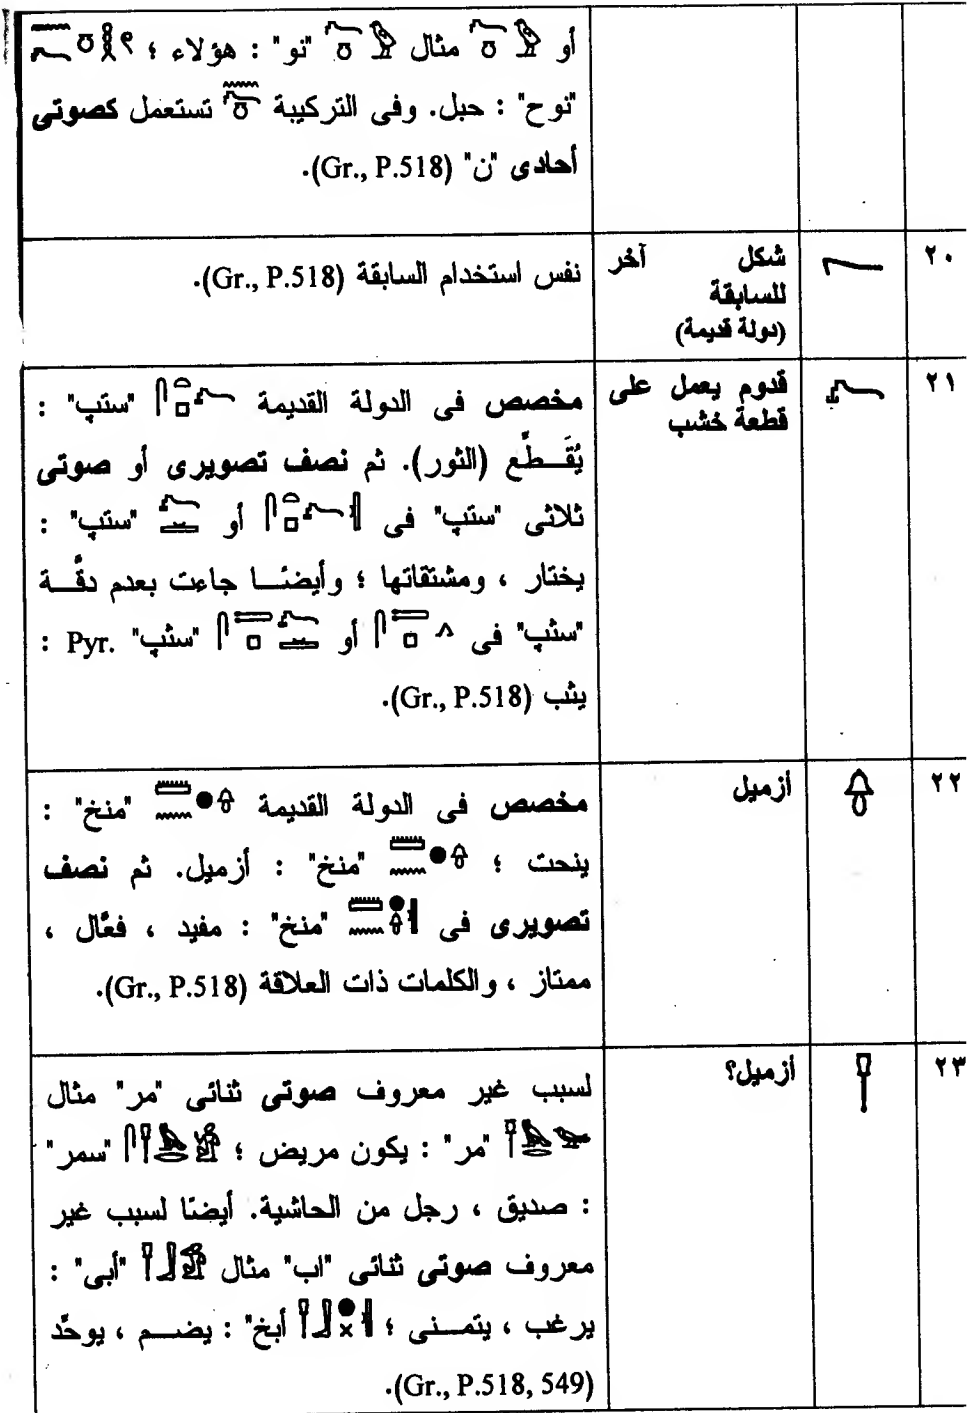 أو مثال "نو" : هؤلاء ؛
"نوح" : حبل. وفى التركيبة تستعمل كصوتى
أحادى "ن" (Gr., P.518).
٢٠
شكل آخر
للسابقة
(دولة قديمة)
نفس استخدام السابقة (Gr., P.518).
٢١
قدوم يعمل على
قطعة خشب
مخصص فى الدولة القديمة "ستپ" :
يُقَـــطَّع (الثور). ثم نصف تصويرى أو صوتى
ثلاثى "ستپ" فى أو "ستپ" :
يختار ، ومشتقاتها ؛ وأيضـًـا جاءت بعدم دقَّـــة
"سثپ" فى أو "سثپ" Pyr. :
يثب (Gr., P.518).
٢٢
أزميل
مخصص فى الدولة القديمة "منخ" :
ينحت ؛ "منخ" : أزميل. ثم نصف
تصويرى فى "منخ" : مفيد ، فعَّال ،
ممتاز ، والكلمات ذات العلاقة (Gr., P.518).
٢٣
أزميل؟
لسبب غير معروف صوتى ثنائى "مر" مثال
"مر" : يكون مريض ؛ "سمر"
: صديق ، رجل من الحاشية. أيضًا لسبب غير
معروف صوتى ثنائى "اب" مثال "أبى" :
يرغب ، يتمـــنى ؛ أبخ" : يضـــم ، يوحَّد
(Gr., P.518, 549).